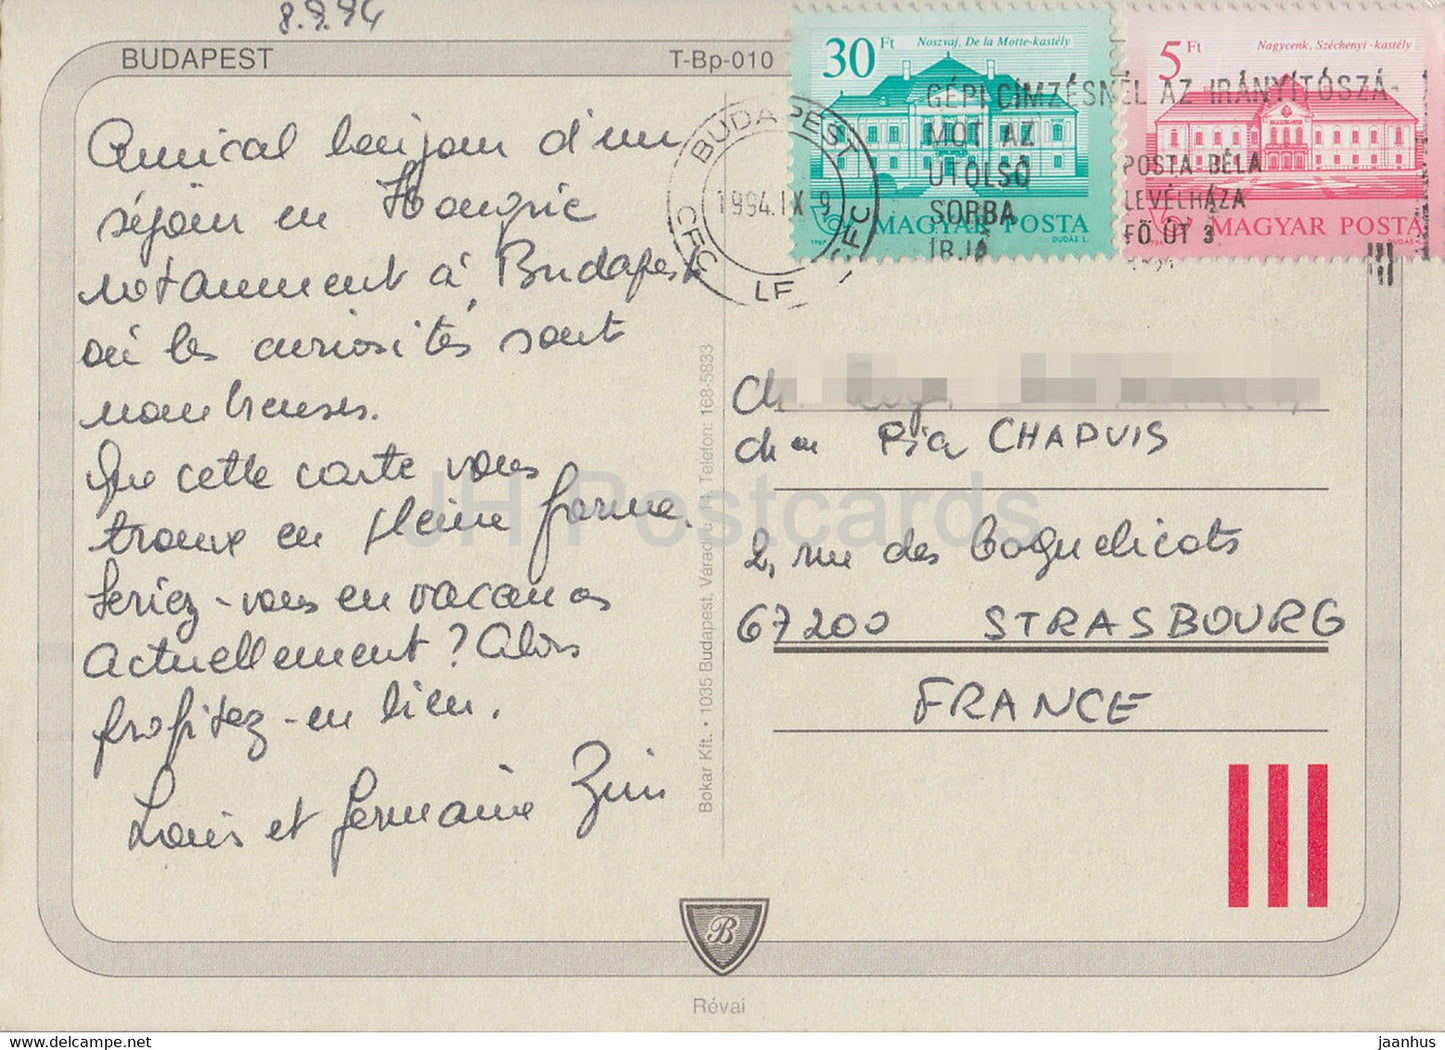 8.9.94
BUDAPEST
T-Bp-010
30 Ft
Noszvaj, De la Motte-kastély
MAGYAR POSTA
1987
DUDÁS L.
5 Ft
Nagycenk, Széchenyi-kastély
MAGYAR POSTA
BUDAPEST
1994.IX-9
LF
GÉPI CÍMZÉSNÉL AZ IRÁNYÍTÓSZÁ-
MOT AZ
UTOLSÓ
SORBA
ÍRJA
POSTA BÉLA
LEVÉLHÁZA
FŐ ÚT 3
Amical bonjour d'un
séjour en Hongrie
notamment à Budapest
où les curiosités sont
nombreuses.
Que cette carte vous
trouve en pleine forme.
Seriez-vous en vacances
actuellement ? Alors
profitez-en bien.
Louis et Germaine
Bokar Kft. • 1035 Budapest, Váradi u. Telefon: 168-5833
Ch
Pia CHAPUIS
2, rue des Coquelicots
67200 STRASBOURG
FRANCE
JH Postcards
B
Révai
www.delcampe.net
jaanhus